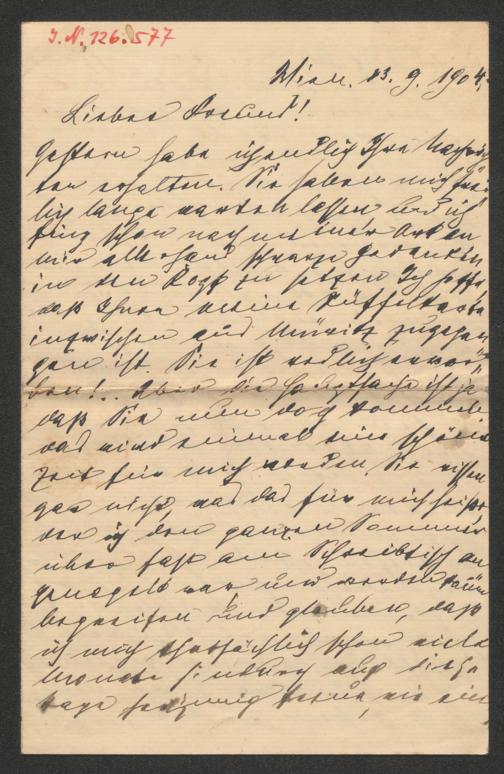 I. N. 126.577
Wien. 13. 9. 1904.
Lieber Freund!
Gestern habe ich endlich Ihre Nachrich-
ten erhalten. Sie haben mich
lich lange warten lassen und ich
fing schon nach meiner Art an
mir allerhand schwarze Gedanken
in den Kopf zu setzen. Ich hoffe
daß Ihnen meine
inzwischen aus Müritz zugegan-
gen ist. Sie ist redlich erwor-
ben!.. Aber die Hauptsache ist ja
daß Sie nun doch kommen.
Das wird einmal eine schöne
Zeit für mich werden. Sie wissen
gar nicht, was das für mich heißt,
der ich den ganzen Sommer
über fast am Schreibtisch an
genagelt war und werden kaum
begreifen und glauben, daß
ich mich thatsächlich schon viele
Monate hindurch auf diese
Tage freue, wie ein